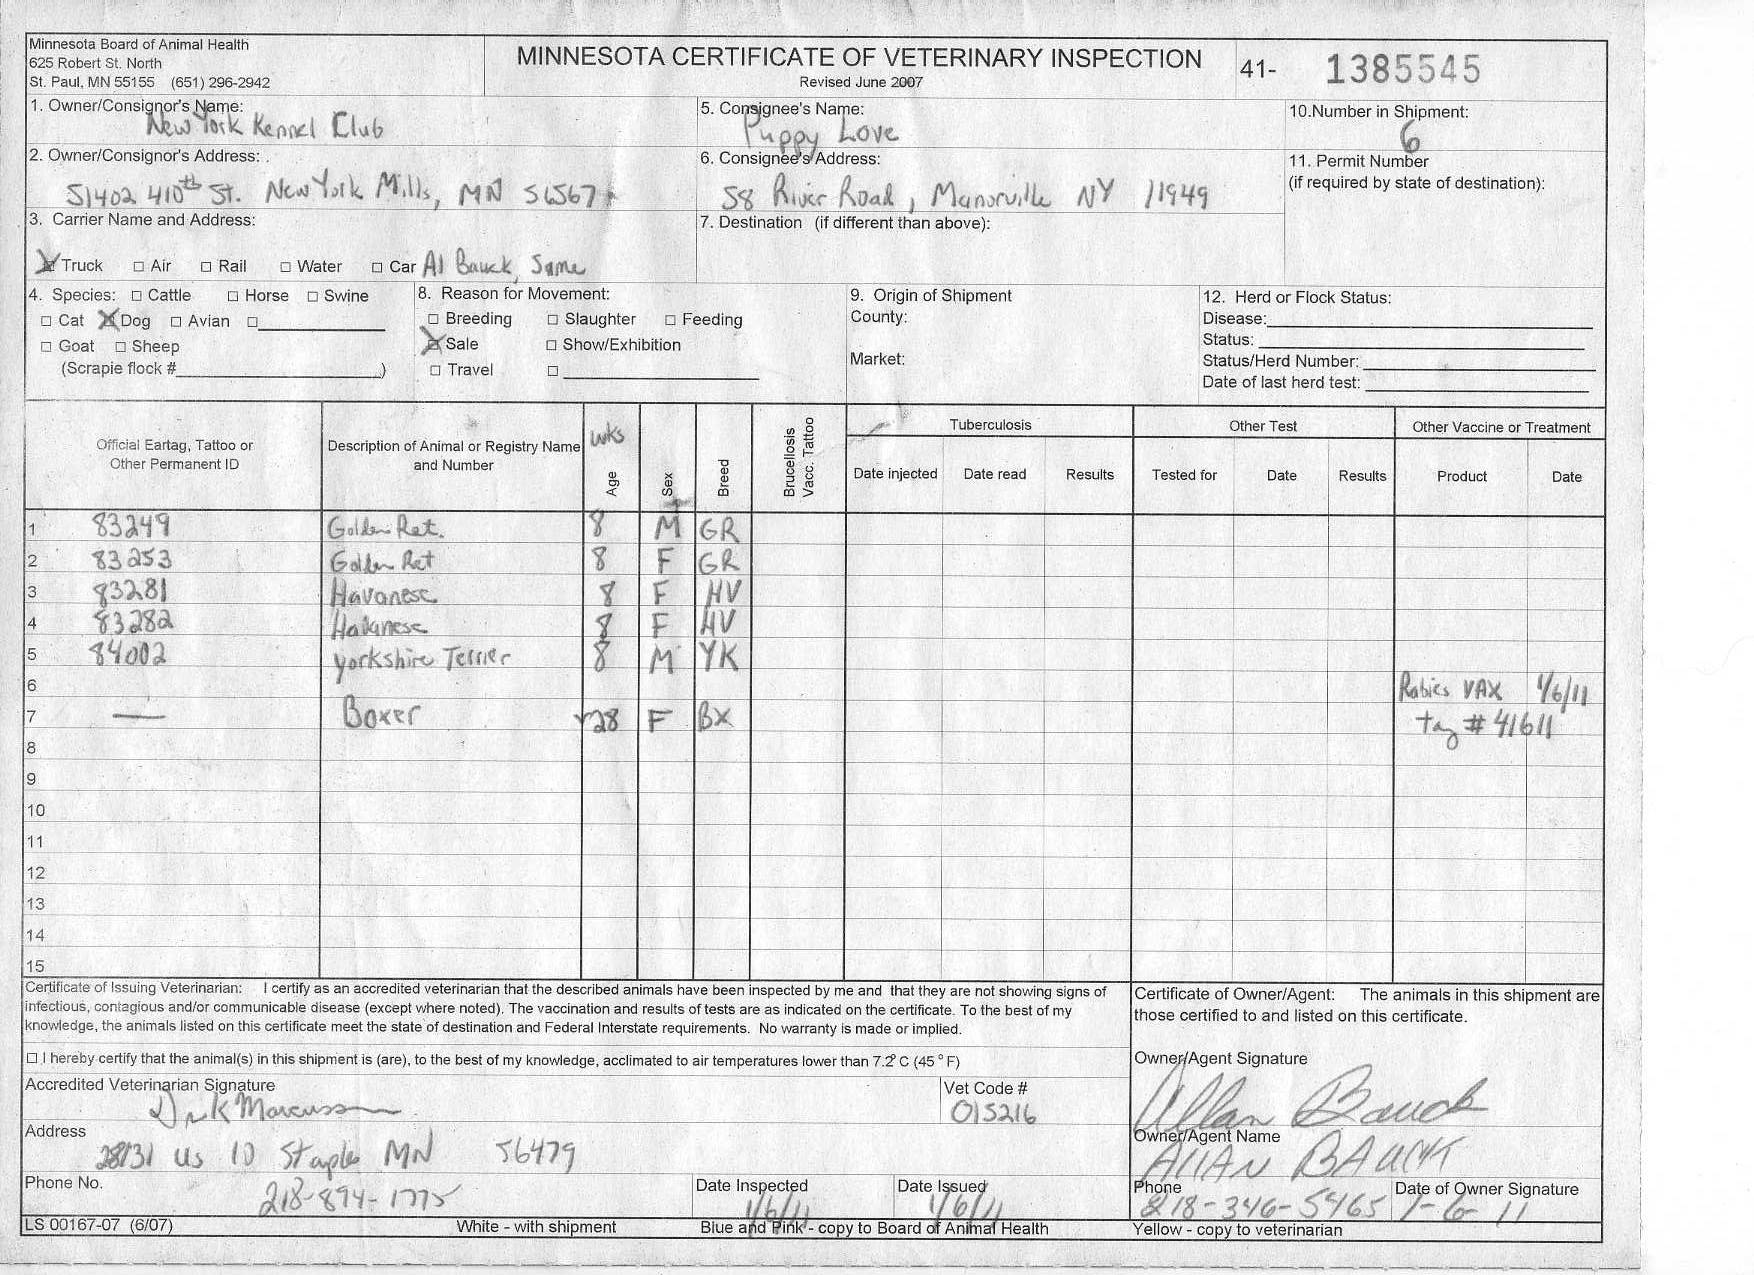 Minnesota Board of Animal Health
625 Robert St. North
St. Paul, MN 55155 (651) 296-2942
MINNESOTA CERTIFICATE OF VETERINARY INSPECTION
Revised June 2007
41- 1385545
1. Owner/Consignor's Name:
New York Kennel Club
5. Consignee's Name:
Puppy Love
10.Number in Shipment:
6
2. Owner/Consignor's Address:
51402 410th St. New York Mills, MN 56567
6. Consignee's Address:
58 River Road, Manorville NY 11949
11. Permit Number
(if required by state of destination):
3. Carrier Name and Address:
Truck Air Rail Water Car Al Bauck, Same
7. Destination (if different than above):
4. Species: Cattle Horse Swine
Cat Dog Avian
Goat Sheep
(Scrapie flock # )
8. Reason for Movement:
Breeding Slaughter Feeding
Sale Show/Exhibition
Travel
9. Origin of Shipment
County:
Market:
12. Herd or Flock Status:
Disease:
Status:
Status/Herd Number:
Date of last herd test:
Official Eartag, Tattoo or
Other Permanent ID
Description of Animal or Registry Name
and Number
wks
Age
Sex
Breed
Brucellosis
Vacc. Tattoo
Tuberculosis
Date injected Date read Results
Other Test
Tested for Date Results
Other Vaccine or Treatment
Product Date
1 83249 Golden Ret. 8 M GR
2 83253 Golden Ret 8 F GR
3 83281 Havanese 8 F HV
4 83282 Havanese 8 F HV
5 84002 Yorkshire Terrier 8 M YK
6 Rabies VAX 1/6/11
7 — Boxer 28 F BX tag # 41611
8
9
10
11
12
13
14
15
Certificate of Issuing Veterinarian: I certify as an accredited veterinarian that the described animals have been inspected by me and that they are not showing signs of
infectious, contagious and/or communicable disease (except where noted). The vaccination and results of tests are as indicated on the certificate. To the best of my
knowledge, the animals listed on this certificate meet the state of destination and Federal Interstate requirements. No warranty is made or implied.
I hereby certify that the animal(s) in this shipment is (are), to the best of my knowledge, acclimated to air temperatures lower than 7.2° C (45° F)
Certificate of Owner/Agent: The animals in this shipment are
those certified to and listed on this certificate.
Accredited Veterinarian Signature
Vet Code #
015216
Owner/Agent Signature
Allan Bauck
Address
28131 US 10 Staples MN 56479
Owner/Agent Name
Allan BAUCK
Phone No.
218-894-1775
Date Inspected
1/6/11
Date Issued
1/6/11
Phone
218-346-5465
Date of Owner Signature
1-6-11
LS 00167-07 (6/07) White - with shipment Blue and Pink - copy to Board of Animal Health Yellow - copy to veterinarian